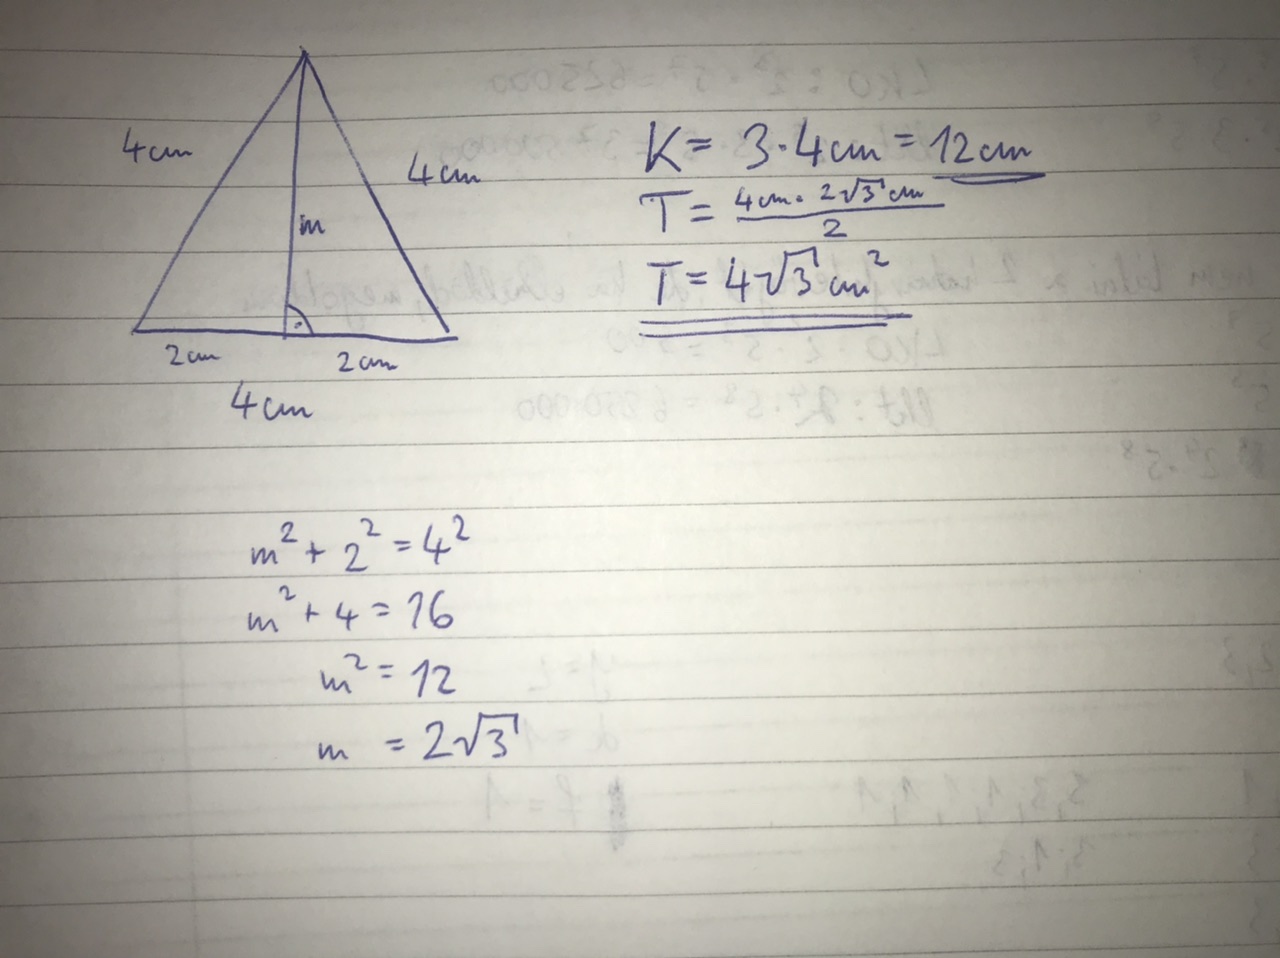 4cm
4cm
m
2cm 2cm
4cm
K = 3·4cm = 12cm
T = 4cm·2√3 cm / 2
T = 4√3 cm²
m² + 2² = 4²
m² + 4 = 16
m² = 12
m = 2√3